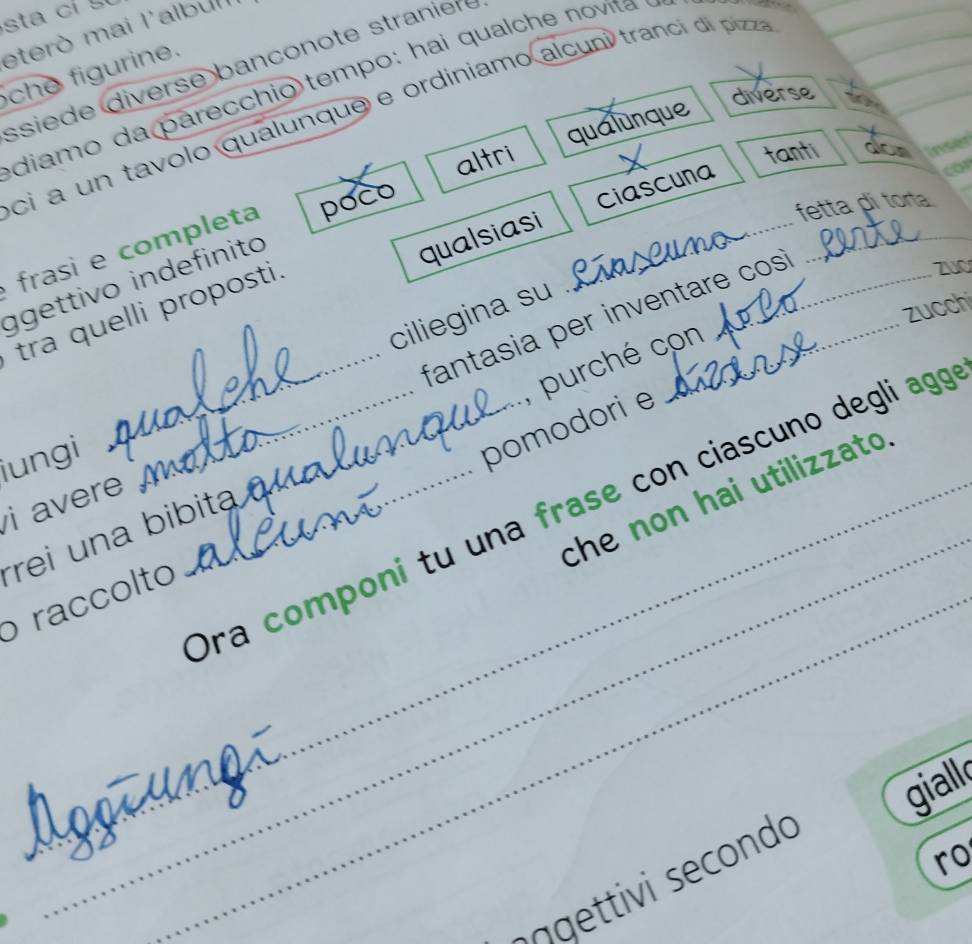 sta ci
eterò mai l'album
oche figurine.
ssiede diverse banconote straniere.
ediamo da parecchio tempo: hai qualche novità da
oci a un tavolo qualunque e ordiniamo alcuni tranci di pizza.
e frasi e completa
ggettivo indefinito
o tra quelli proposti.
poco altri qualunque diverse
qualsiasi ciascuna tanti alcuni
iungi qualche ciliegina su ciascuna fetta di torta.
vi avere molta fantasia per inventare così certe
rrei una bibita qualunque, purché con poco zuc
o raccolto alcuni pomodori e diverse zucchi
Ora componi tu una frase con ciascuno degli agget
che non hai utilizzato.
Aggiungi
aggettivi secondo
giallo
ro